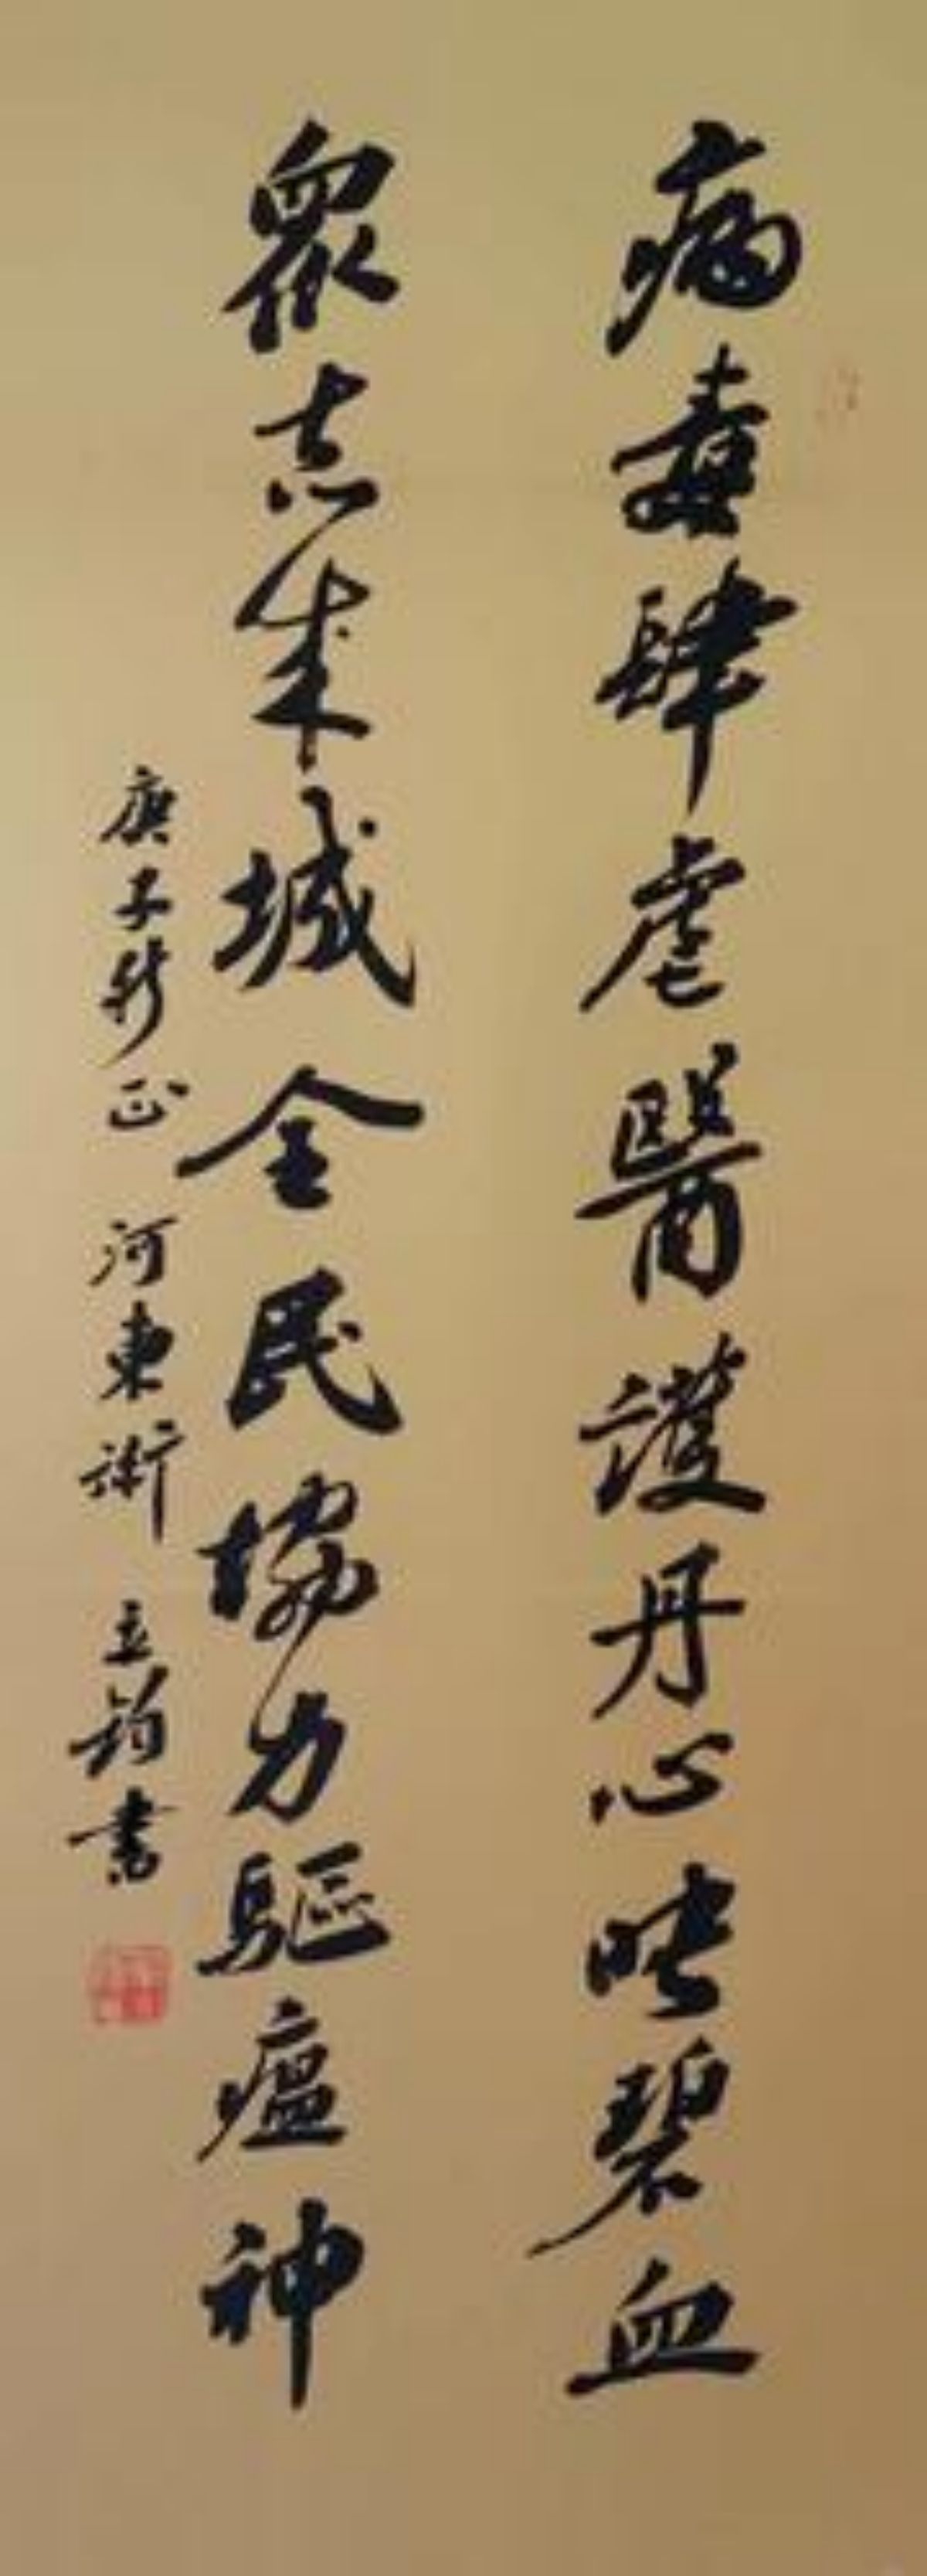 病毒肆虐醫護丹心映碧血
眾志成城全民協力驅瘟神
庚子新正 河東街 立新書